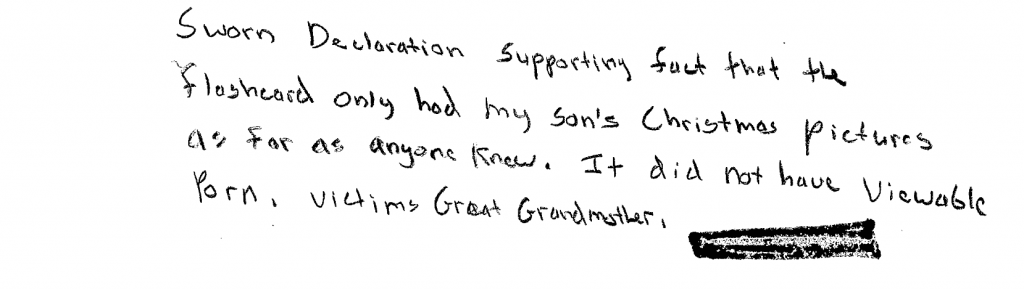 Sworn Declaration Supporting fact that the
flashcard only had my son's Christmas pictures
as far as anyone knew. It did not have Viewable
Porn. victims Great Grandmother.